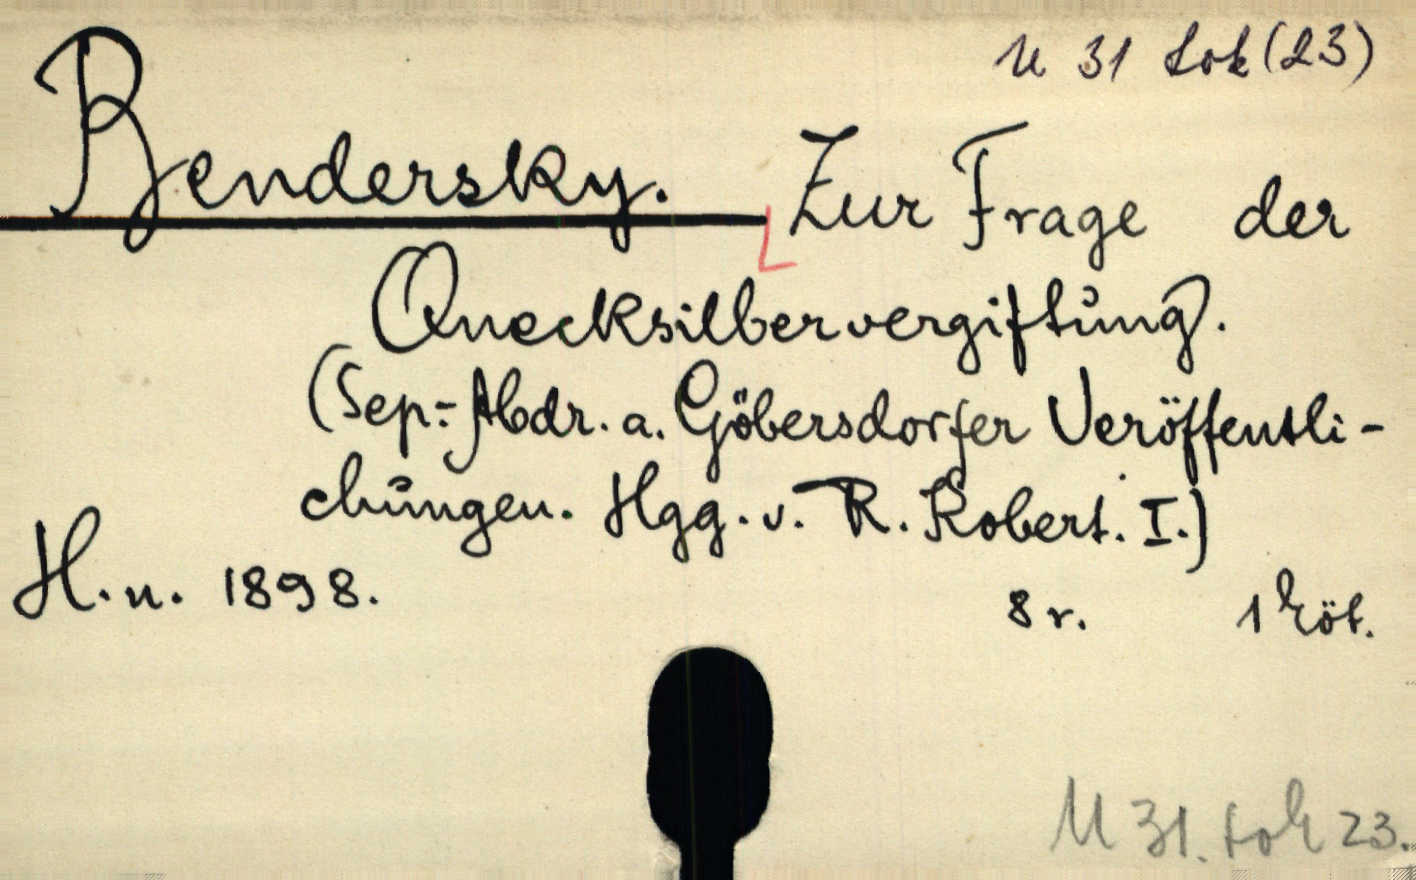 M 31 tok (23)
Bendersky. Zur Frage der
Quecksilbervergiftung.
(Sep.-Abdr. a. Göbersdorfer Veröffentli-
chungen. Hgg. v. R. Kobert. I.)
H. n. 1898. 8 r. 1 köt.
M 31. tok 23.